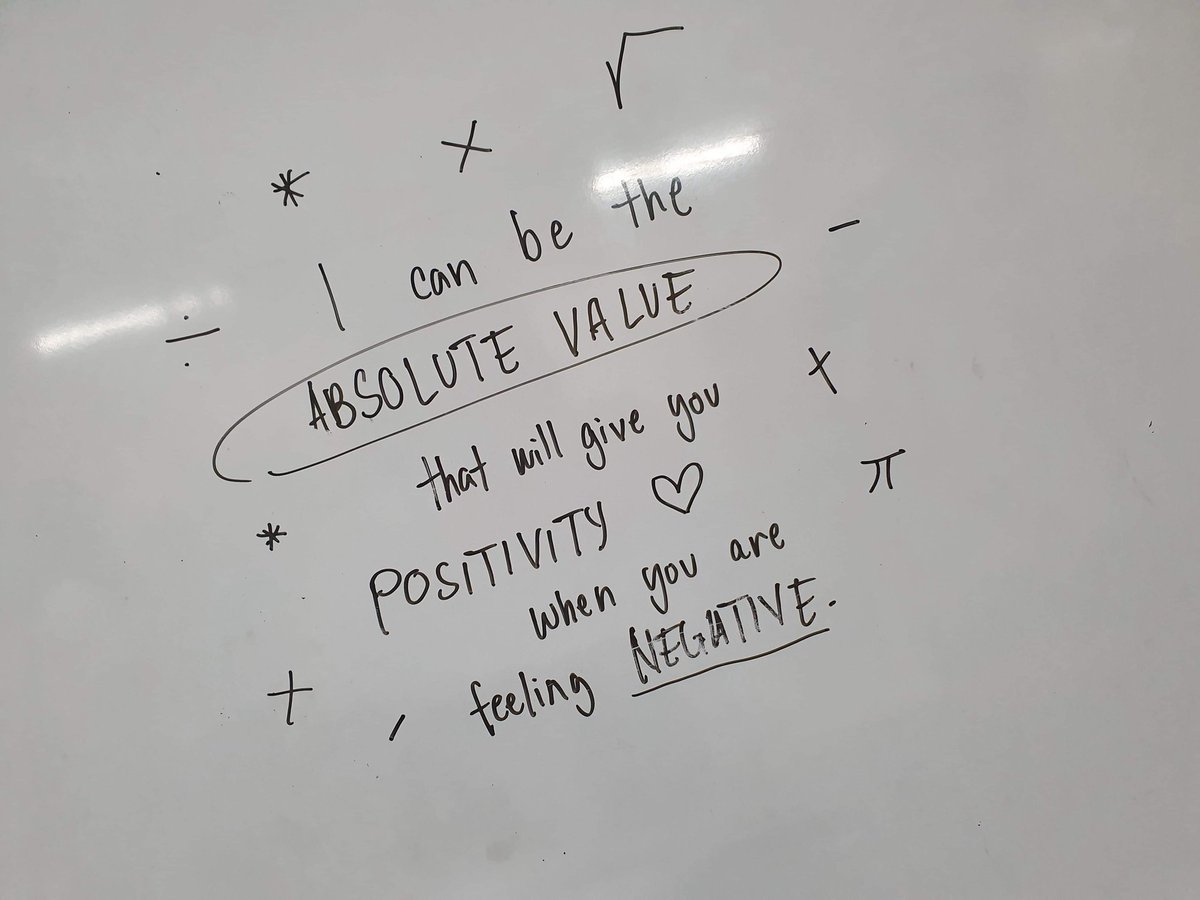 √
* ×
I can be the
÷ -
ABSOLUTE VALUE
that will give you +
* POSITIVITY ♡ π
when you are
+ feeling NEGATIVE.